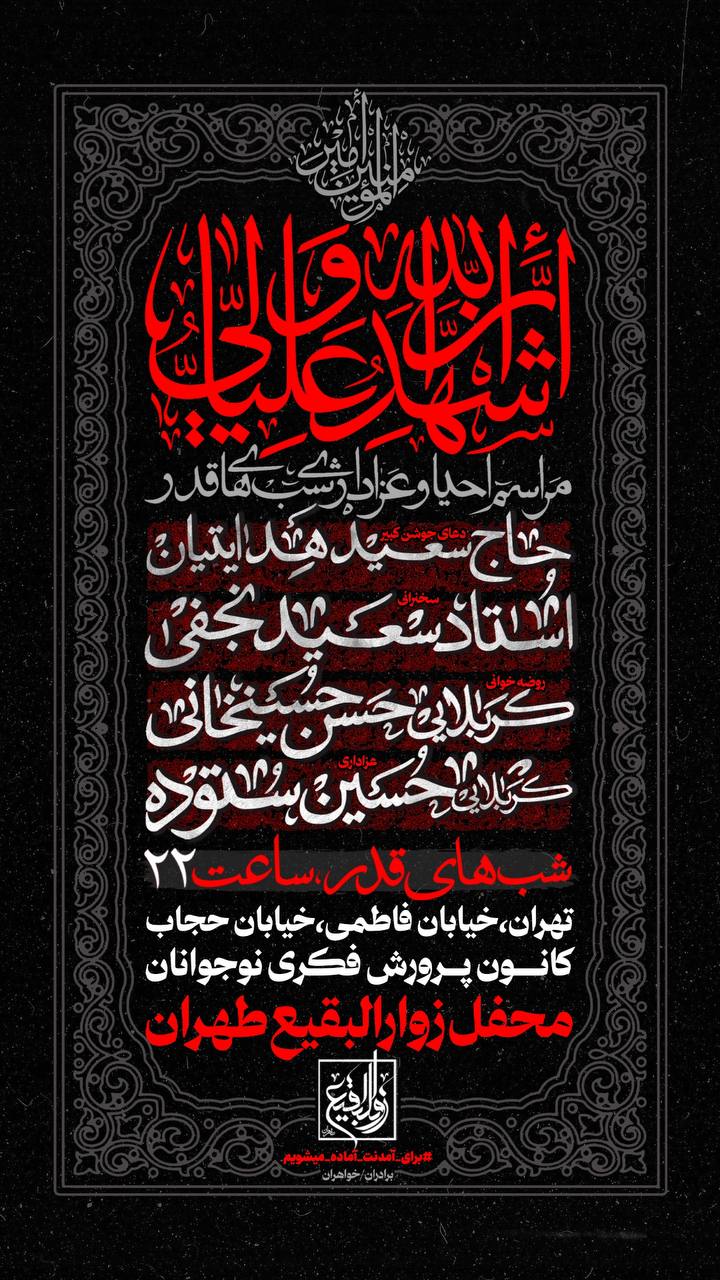 امیرالمؤمنین
أشهد أنّ علیاً ولیّ الله
مراسم احیا و عزاداری شب‌های قدر
دعای جوشن کبیر
حاج سعید هدایتیان
سخنرانی
استاد سعید نجفی
روضه خوانی
کربلایی حسن حسینخانی
عزاداری
کربلایی حسین ستوده
شب‌های قدر، ساعت ۲۲
تهران، خیابان فاطمی، خیابان حجاب
کانون پرورش فکری نوجوانان
محفل زوارالبقیع طهران
زوارالبقیع
#برای_آمدنت_آماده_میشویم
برادران/خواهران